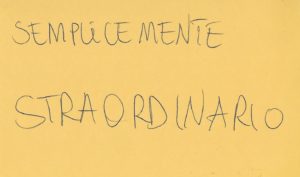 SEMPLICEMENTE
STRAORDINARIO